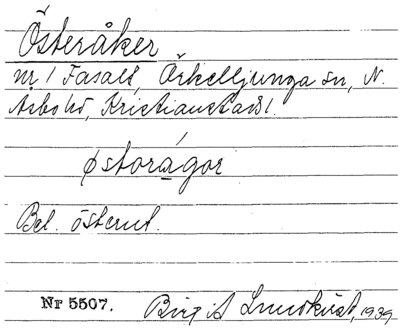 Österåker
nr 1 Fasalt, Örkelljunga sn, N.
Åsbo hd, Kristianstads l.
østorågor
Bel. österut.
Nr 5507. Birgit Lundkvist, 1939